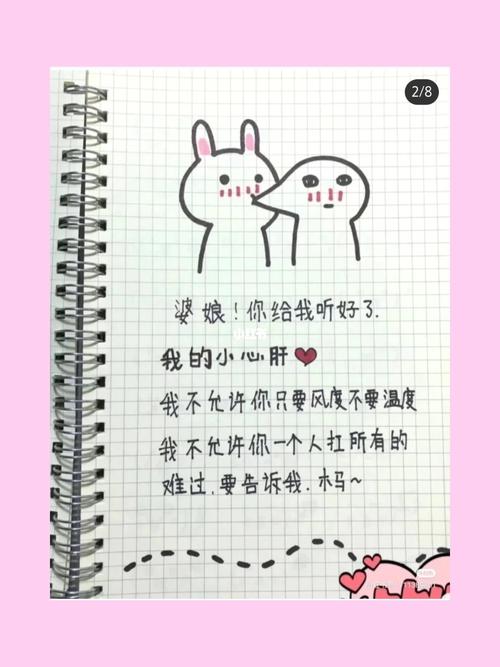 2/8
婆娘！你给我听好了.
我的小心肝
我不允许你只要风度不要温度
我不允许你一个人扛所有的
难过.要告诉我.木马~